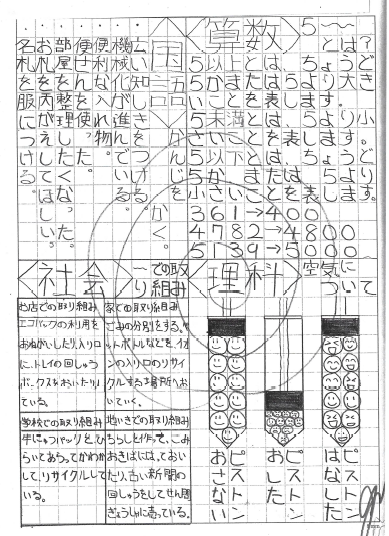 〈算数〉 5〜〜とは?
5以上とは、ちょうど
5かまたは5より大き
いことを表します。
5未満とは、5より小
さいことを表します。
5以下とは、ちょうど
5かまたは5より
小さいことを表します。
361→400
4782→4800
5139→5000
国語
かん字をかく。
機械化が進んでいる。
便利な物。
便せんを使った。
部屋を整理した。
お札を
名札を服につける。
〈理科〉 空気について
ピストン
はなした
ピストン
おした
ピストン
おさない
〈社会〉 〜での取り組み
お店での取り組み
エコバックの利用を
おねがいしたり、入り口
に、トレイの回しゅう
ボックスをおいたりし
ている。
家での取り組み
ごみの分別をする。ペ
ットボトルなどを、イオ
ンの入り口のリサイ
クルする場所へお
いていく。
学校での取り組み
牛にゅうパックを、ひ
らいてあらってかわか
して、リサイクルして
いる。
地いきでの取り組み
ちらしを作って、ごみ
おきばにはっておい
たり、古い新聞の
回しゅうをしてせん門
ぎょうしゃに売っている。